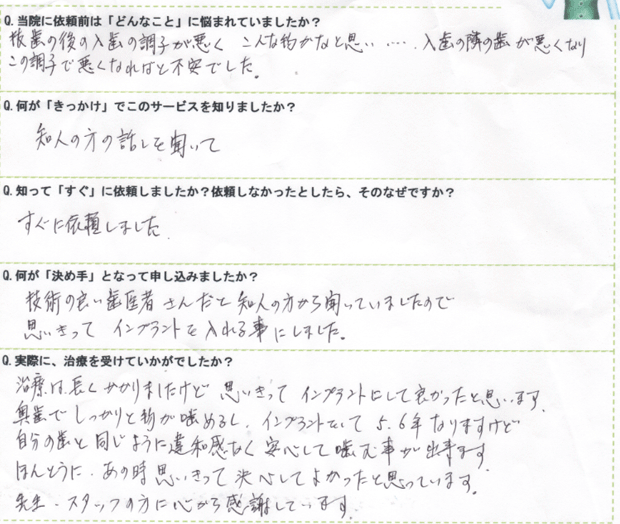 Q.当院に依頼前は「どんなこと」に悩まれていましたか？
抜歯の後の入歯の調子が悪く こんな物かなと思い‥‥. 入歯の隣の歯が悪くなり
この調子で悪くなればと不安でした。
Q.何が「きっかけ」でこのサービスを知りましたか？
知人の方の話しを聞いて
Q.知って「すぐ」に依頼しましたか？依頼しなかったとしたら、そのなぜですか？
すぐに依頼しました.
Q.何が「決め手」となって申し込みましたか？
技術の良い歯医者さんだと知人の方から聞いていましたので
思いきって インプラントを入れる事にしました。
Q.実際に、治療を受けていかがでしたか？
治療は長くかかりましたけど 思いきって インプラントにして良かったと思います.
奥歯で しっかりと物が噛めるし. インプラントにして 5.6年なりますけど
自分の歯と同じように違和感なく 安心して噛む事が出来ます
ほんとうに. あの時思いきって 決心してよかったと思っています.
先生・スタッフの方に心から感謝しています.